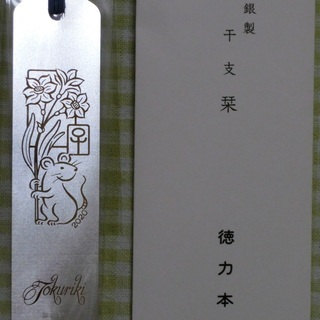 子
2020
Tokuriki
銀製
干支栞
徳力本